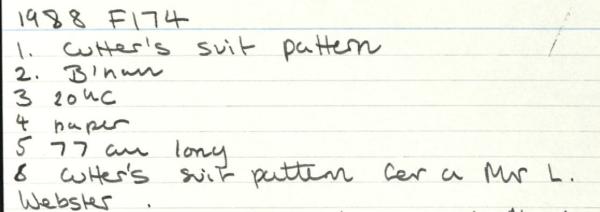 1988 F174
1. Cutter's suit pattern
2. B'ham
3 20th C
4 paper
5 77 cm long
8 Cutter's suit pattern for a Mr L.
Webster.